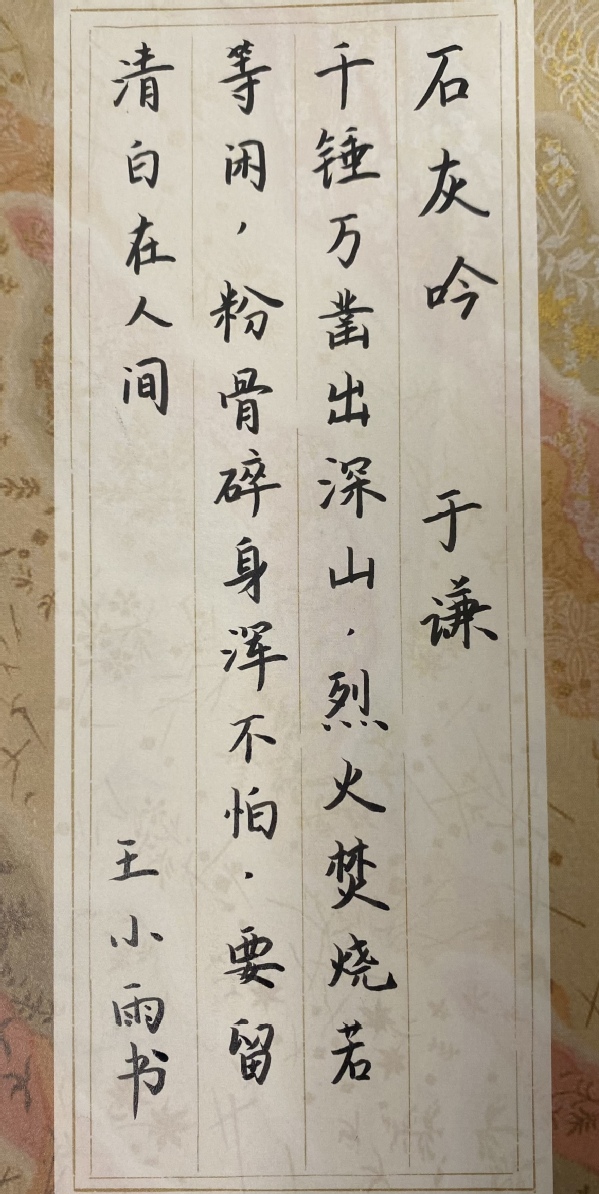 石灰吟 于谦
千锤万凿出深山，烈火焚烧若
等闲，粉骨碎身浑不怕，要留
清白在人间 王小雨书